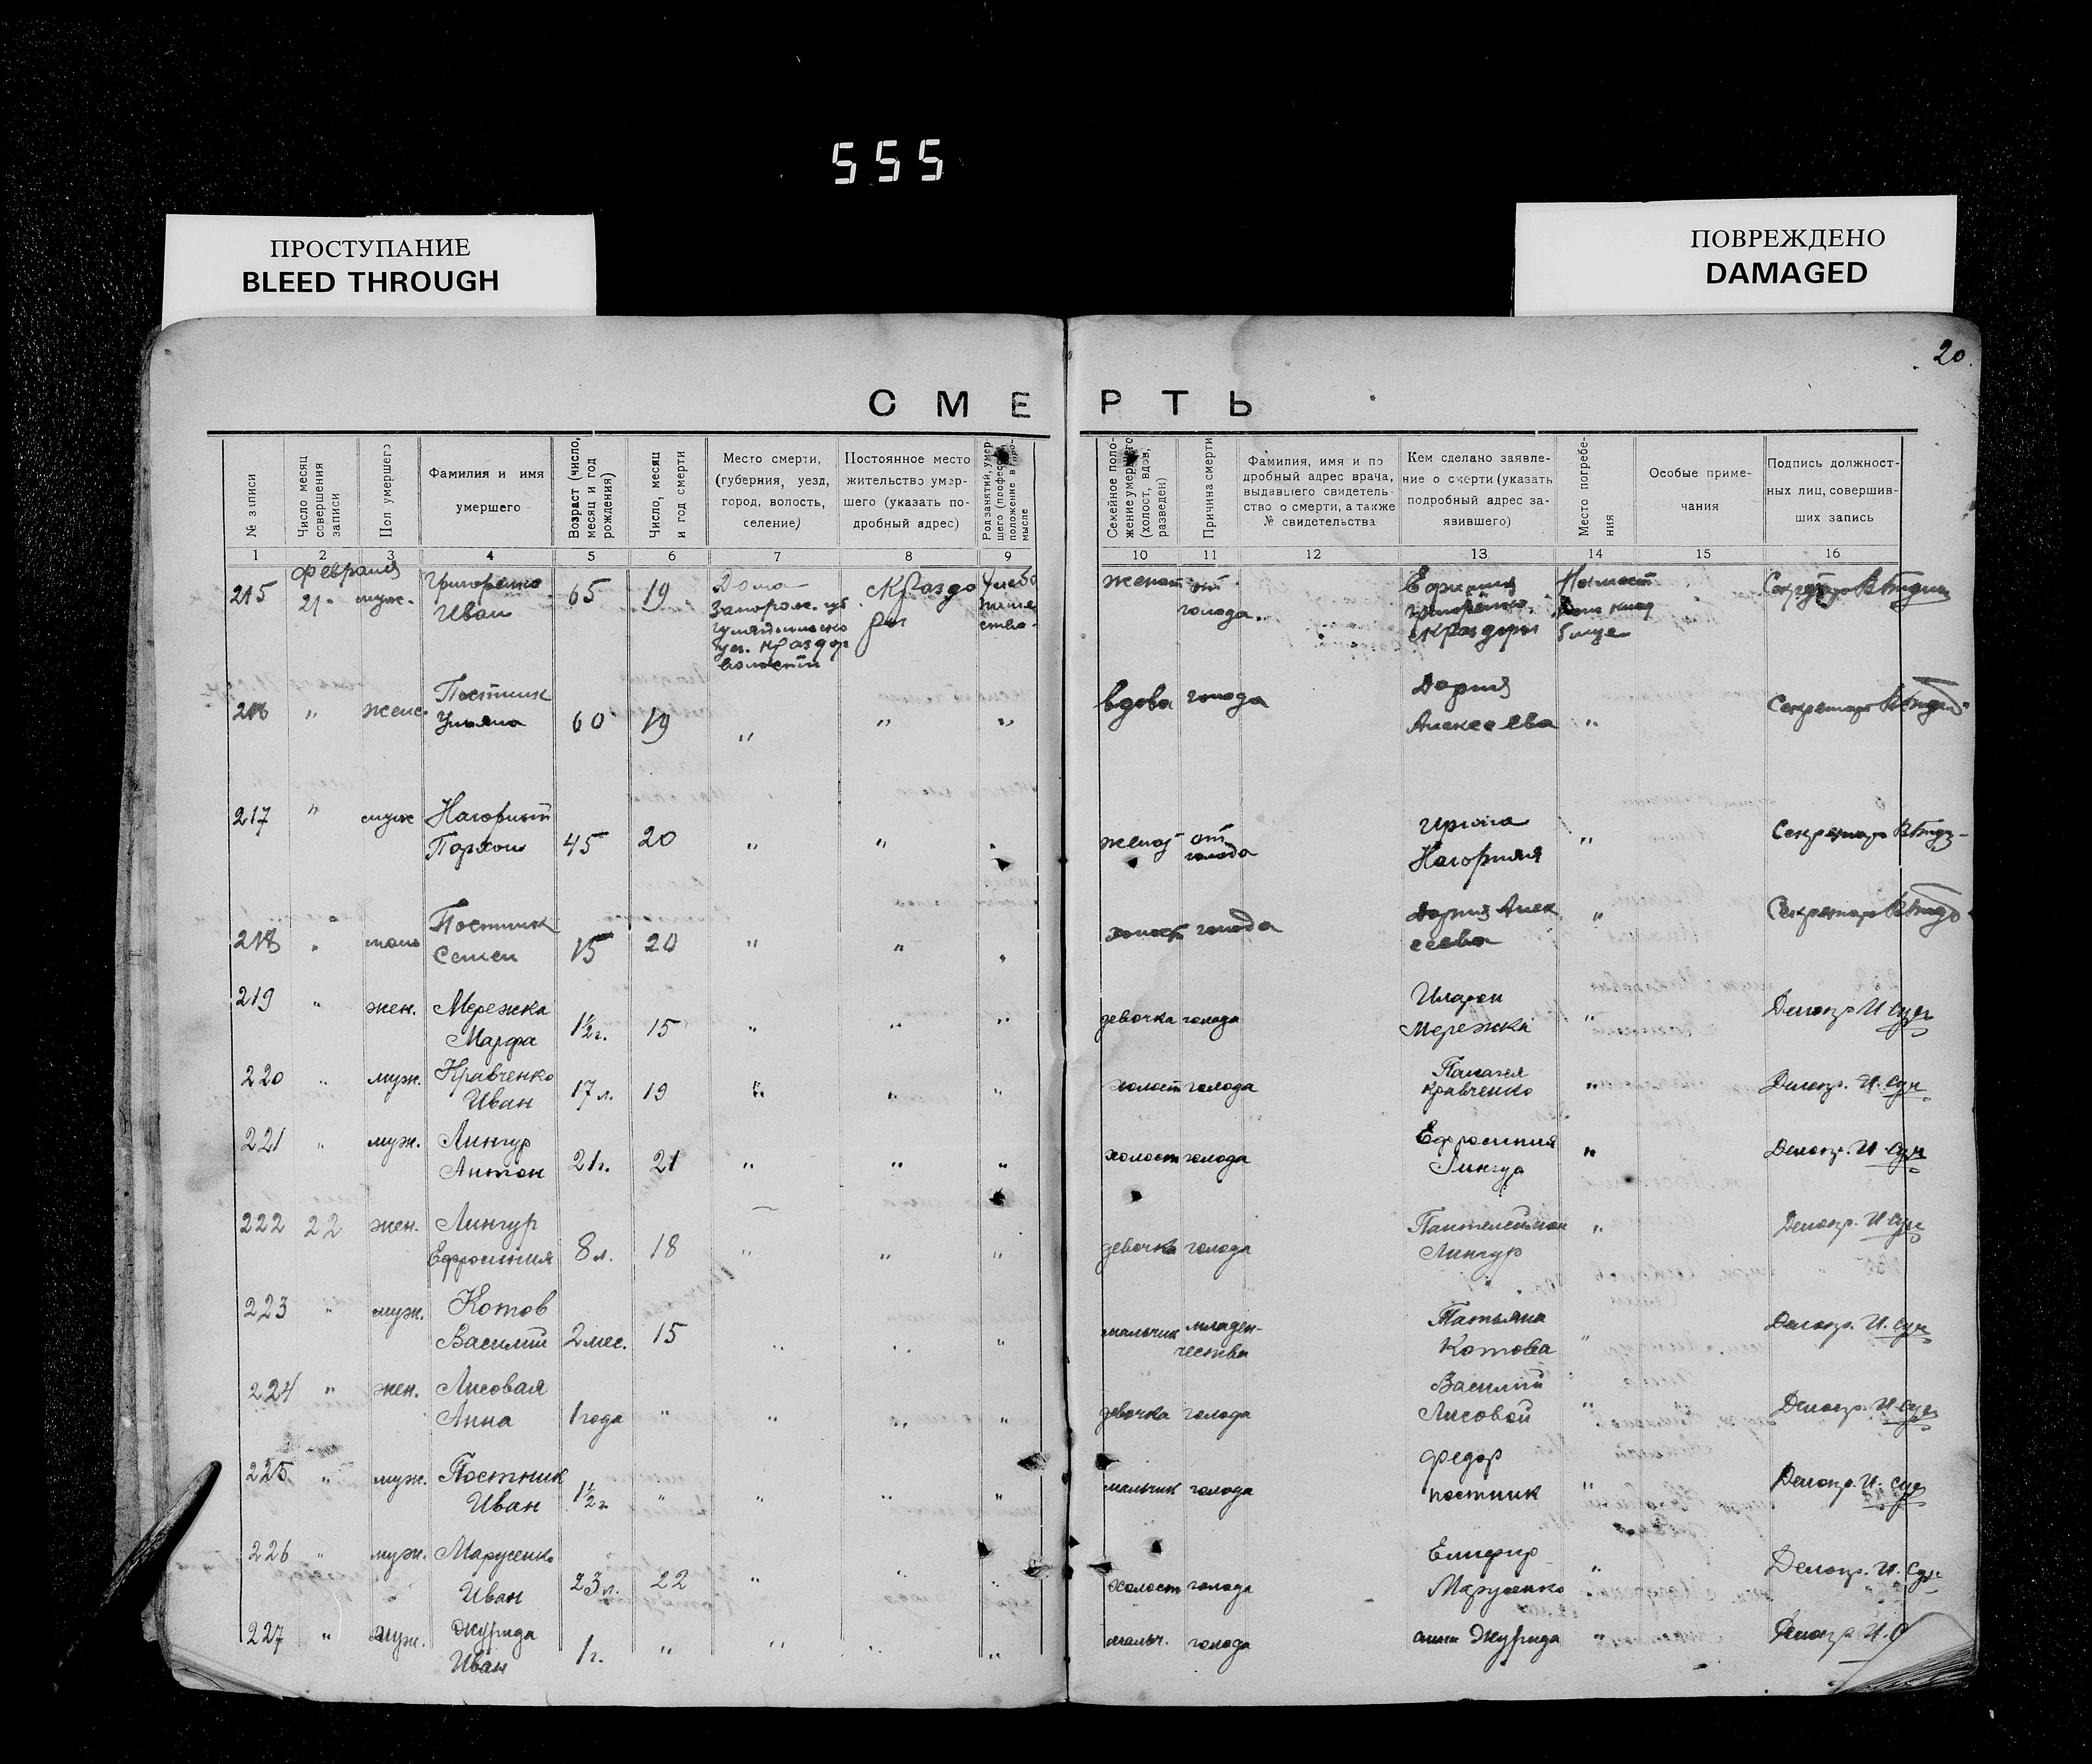 555
ПРОСТУПАНИЕ
BLEED THROUGH
ПОВРЕЖДЕНО
DAMAGED
20
СМЕРТЬ
№ записи
Число месяц совершения записи
Пол умершего
Фамилия и имя умершего
Возраст (число, месяц и год рождения)
Число, месяц и год смерти
Место смерти, (губерния, уезд, город, волость, селение)
Постоянное место жительство умершего (указать подробный адрес)
Род занятий, умершего (професс. положение в промысле
Семейное положение умершего (холост, вдов, разведен)
Причина смерти
Фамилия, имя и подробный адрес врача, выдавшего свидетельство о смерти, а также № свидетельства
Кем сделано заявление о смерти (указать подробный адрес заявившего)
Место погребения
Особые примечания
Подпись должностных лиц, совершивших запись
1 2 3 4 5 6 7 8 9 10 11 12 13 14 15 16
февраля
215 21 муж. Григоренко Иван 65 19 Дома женат от голода. Секретарь
" женс. Постник Ульяна 60 19 " " " вдова голода Дария Алексеева " Секретарь
217 " муж Нагорный 45 20 " " " женат от голода Нагорная " Секретарь
218 " Постник Семен 15 20 " " " холост голода Дария Алексеева " Секретарь
219 " жен. Мережка Марфа 1½г. 15 " " " девочка голода Иларон Мережка " Делопр. И. Сук
220 " муж. Кравченко Иван 17 л. 19 " " " холост голода Палагея Кравченко " Делопр. И. Сук
221 " муж. Лингур Антон 21г. 21 " " " холост голода Ефросиния Лингур " Делопр. И. Сук
222 22 жен. Лингур Ефросиния 8 л. 18 " " " девочка голода Пантелеймон Лингур " Делопр. И. Сук
223 " муж. Котов Василий 2 мес. 15 " " " мальчик младенчества Татьяна Котова " Делопр. И. Сук
224 " жен. Лисовая Анна 1 года " " " " девочка голода Василий Лисовой " Делопр. И. Сук
225 " муж. Постник Иван 1½г " " " " мальчик голода Федор постник " Делопр. И. Сук
226 " муж. Марусенко Иван 23 л. 22 " " " холост голода Марусенко " Делопр. И. Сук
227 " муж. Джурида Иван 1 г. " " " " мальч. голода анна Джурида " Делопр И. С